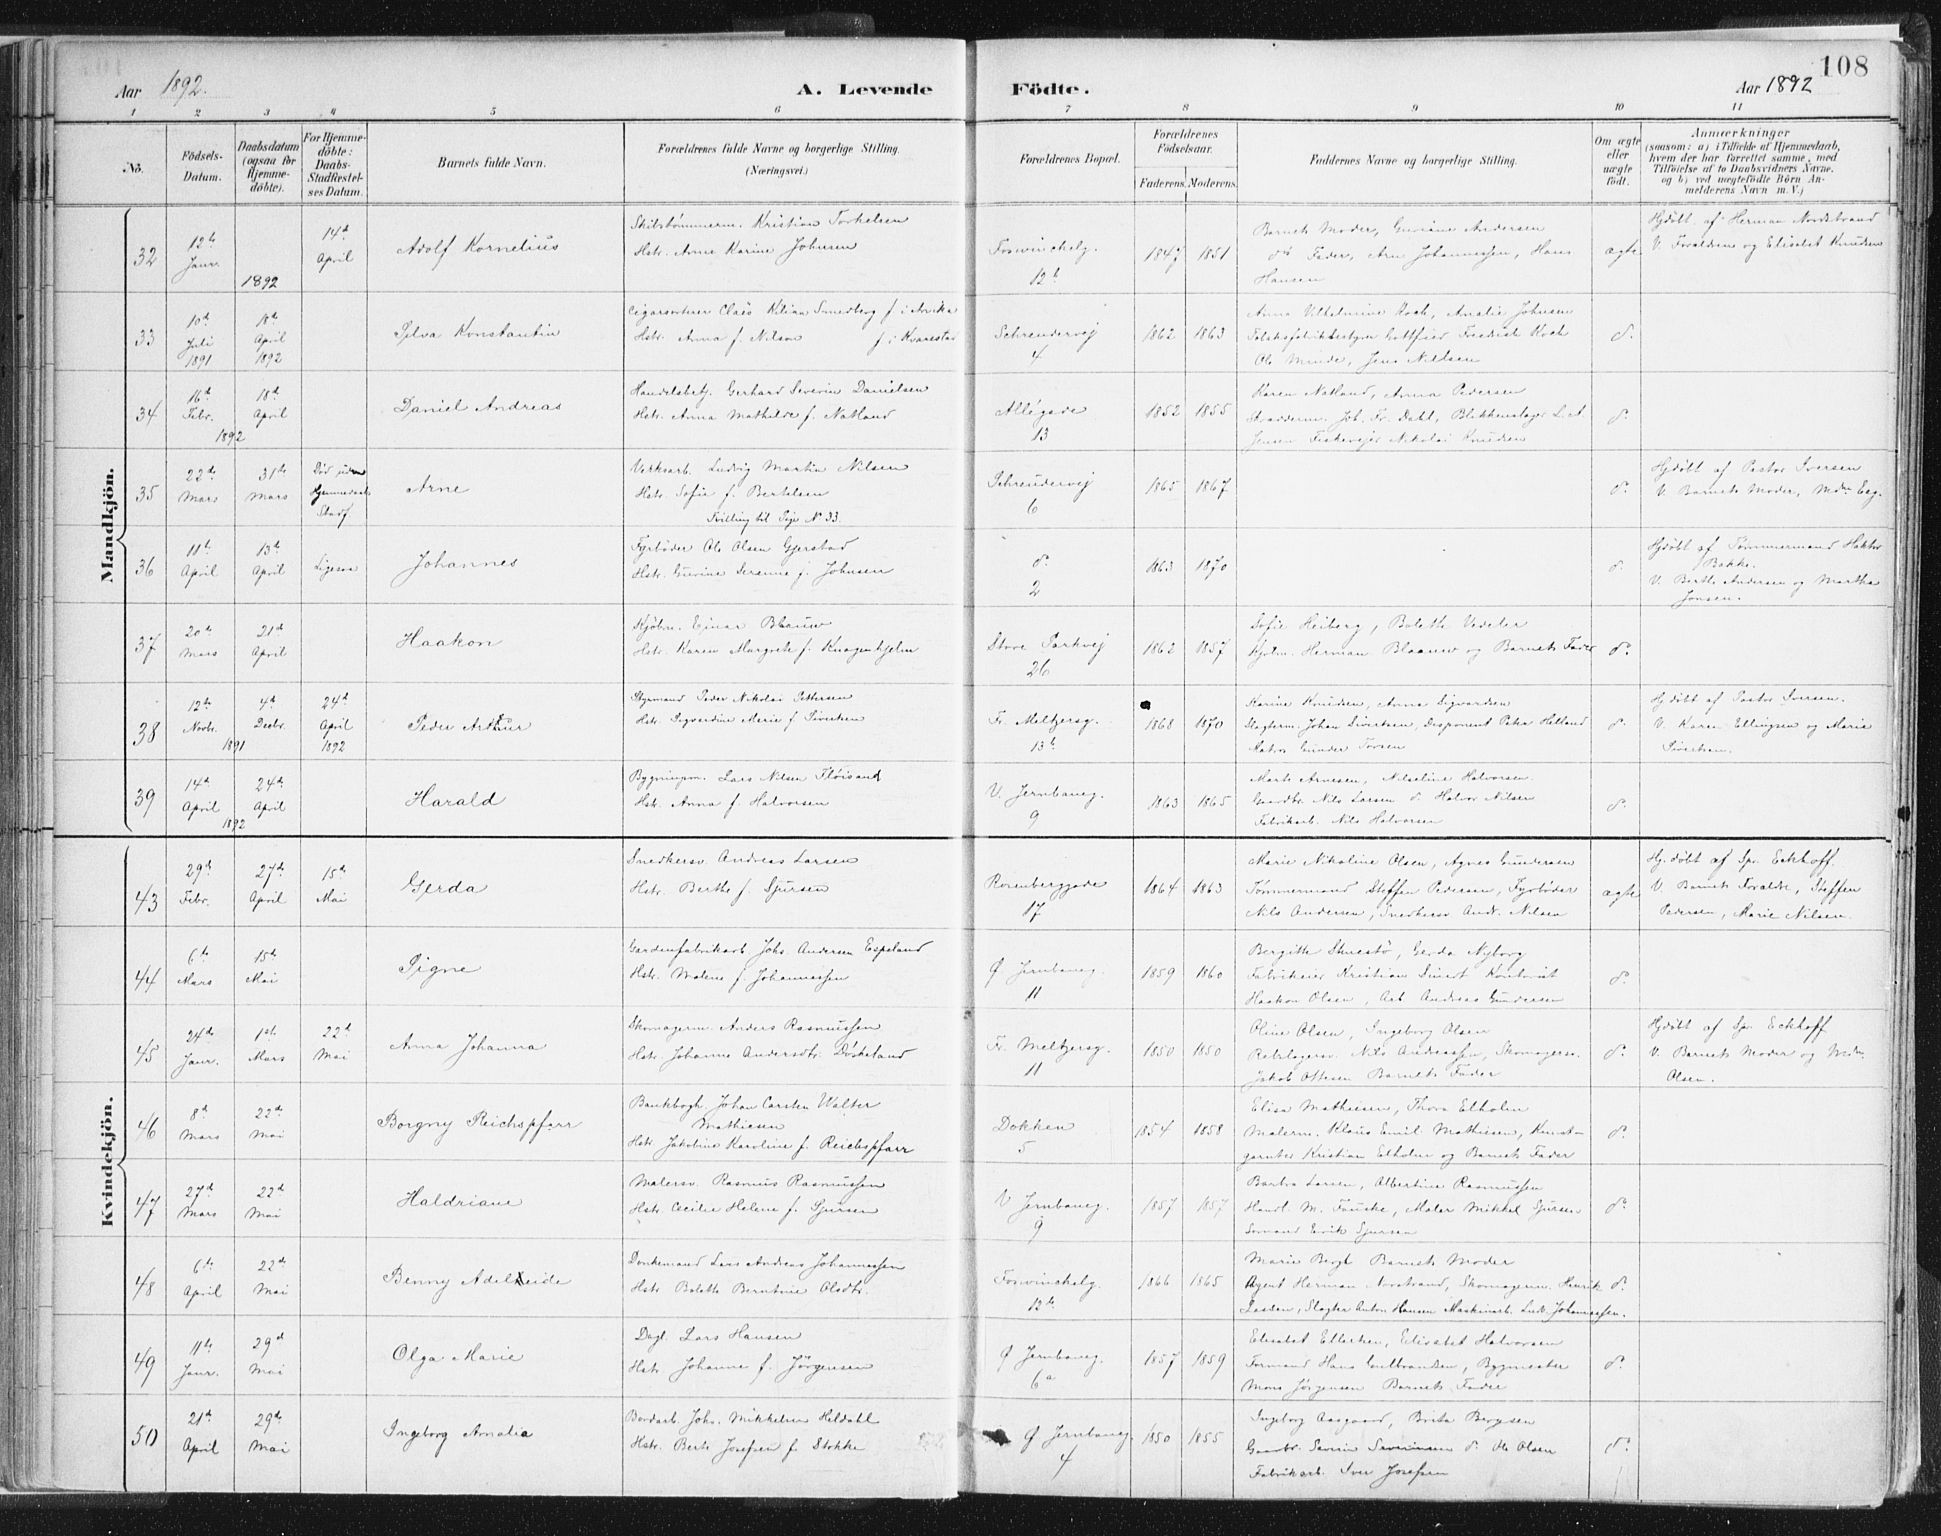 108
Aar 1892.
A. Levende Födte.
Aar 1892
1 2 3 4 5 6 7 8 9 10 11
No.
Födsels-Datum.
Daabsdatum (ogsaa for Hjemme-döbte).
For Hjemme-döbte: Daabs-Stadfæstel-ses Datum.
Barnets fulde Navn.
Forældrenes fulde Navne og borgerlige Stilling.
(Næringsvei.)
Forældrenes Bopæl.
Forældrenes Födselsaar.
Faderens. Moderens.
Faddernes Navne og borgerlige Stilling.
Om ægte eller uægte födt.
Anmærkninger
(saasom: a) i Tilfælde af Hjemmedaab,
hvem der har forrettet samme, med
Tilföielse af to Daabsvidners Navne.
og b) ved uægtefödte Börn An-
melderens Navn m. V.)
Mandkjön.
32 12te Janr. 1892 14de April Adolf Kornelius
Skibstømmerm. Kristian Torkelsen
Hstr. Anna Karine Johnsen
Foswinckelg. 12b 1847 1851
Barnets Moder, Guriane Andersen
do Fader, Arn Johannessen, Hans
Hansen
ægte
Hjdøbt af Herman Nordstrand
V. Forældren og Elisabet Knudsen
33 10de Juli 1891 18de April 1892 Sylva Konstantin
Cigarsorterer Claës Kilian Smedberg f. i Arvika
Hstr. Anna f. Nilson f. i Kvarestad
Schreudervej 4 1862 1863
Anna Vilhelmine Koch, Amalie Johnsen
Tobaksfabrikbestyrer Gottfried Fredrik Koch
Ole Minde, Jens Nielsen
do.
34 16de Febr. 1892 18de April Daniel Andreas
Handelsbetj. Gerhard Severin Danielsen
Hstr. Anna Mathilde f. Natland
Allégade 13 1852 1855
Karen Natland, Anna Pedersen
Skrædderm. Joh. Fr. Dahl, Blikkenslager L. A.
Jensen Fiskevejer Nikolai Knudsen
do.
35 22de Mars 31te Mars Død uden Hjemmedaabs Stadf Arne
Verksarb. Ludvig Martin Nilsen
Hstr. Sofie f. Bertelsen
Tvilling til Pige No 33.
Schreudervej 6 1865 1867
do.
Hjdøbt af Pastor Iversen
V. Barnets Moder, Mdm Eeg.
36 11te April 13de April Ligesaa Johannes
Fyrbøder Ole Olsen Gjerstad
Hstr. Gurine Serenne f. Johnsen
do. 2 1863 1870
do.
Hjdøbt af Tømmermand Haktor
Bakke.
V. Berthe Andersen og Martha
Jonsen.
37 20de Mars 21de April Haakon
Kjøbm. Ejnar Blaauw
Hstr. Karen Margrete f. Knagenhjelm
Store Parkvej 26 1862 1857
Sofie Heiberg, Bolette Vedeler
Kjøbm. Herman Blaauw og Barnets Fader
do.
38 12te Novbr. 1891 4de Decbr. 24de April 1892 Peder Arthur
Styrmand Peder Nikolai Pettersen
Hstr. Sigvardine Marie f. Sivertsen
Fr. Meltzersg. 13b 1868 1870
Karine Knudsen, Anna Sigvardsen
Slagterm. Johan Sivertsen, Disponent Peter Helland
Matros Gunder Torsen
do.
Hjdøbt af Pastor Iversen.
V. Karen Ellingsen og Marie
Sivertsen.
39 14de April 1892 24de April Harald
Bygningsm. Lars Nilsen Fløisand
Hstr. Anna f. Halvorsen
V. Jernbaneg. 9 1863 1865
Marte Arnesen, Nilseline Halvorsen.
Gaardbr. Nils Larsen do. Halvor Nilsen
Fabrikarb. Nils Halvorsen
do.
Kvindekjön.
43 29de Febr. 27de April 15de Mai Gerda
Snedkersv. Andreas Larsen
Hstr. Berthe f. Sjursen
Rosenberggade 17 1864 1863
Marie Nikoline Olsen, Agnes Gundersen
Tømmermand Steffen Pedersen, Fyrbøder
Nils Andersen, Snedkersv. Andr. Nilsen
ægte
Hj.døbt af Spr. Eckhoff.
V. Barnets Forældre, Steffen
Pedersen, Marie Nilsen.
44 6te Mars 15de Mai Signe
Gardinfabrikarb Johs. Andersen Espeland
Hstr. Malene f. Johannessen
Ø Jernbaneg. 11 1859 1860
Bergitte Skuestø, Gerda Nyborg
Fabrikeier Kristian Sivert Kontorist
Haakon Olsen, Arb Andreas Gundersen
do.
45 24de Janr. 1ste Mars 22de Mai Anna Johanna
Skomagerm. Anders Rasmussen
Hstr. Johanne Andersdtr. Døskeland
Fr. Meltzersg. 11 1850 1850
Oline Olsen, Ingeborg Olsen
Rebslagersv. Nils Andreassen, Skomagersv.
Jakob Ottesen Barnets Fader
do.
Hjdøbt af Spr. Eckhoff
V. Barnets Moder og Mdm.
Olsen.
46 8de Mars 22de Mai Borgny Reichspfarr
Bankbogh. Johan Carsten Walter
Mathiesen
Hstr. Jakobine Karoline f. Reichspfarr
Dokken 5 1854 1858
Elisa Mathiesen, Thora Elholm
Malerm. Klaus Emil Mathiesen, Kunst-
gartner Kristian Elholm og Barnets Fader
do.
47 27de Mars 22de Mai Haldriane
Malersv. Rasmus Rasmussen
Hstr. Cecilie Helene f. Sjursen
V Jernbaneg. 9 1857 1857
Barbra Larsen, Albertine Rasmussen
Handl. M. Fauske, Maler Mikkel Sjursen
Sømand Erik Sjursen
do.
48 6te April 22de Mai Benny Adeleide
Donkemand Lars Andreas Johannessen
Hstr. Bolette Berntine Olsdtr.
Foswinckelg. 12b 1866 1865
Marie Bergh Barnets Moder
Agent Herman Norstrand, Skomagerm. Henrik
Lassen, Slagter Anton Hansen Maskinarb. Ludv. Johannessen.
do.
49 11te Janr. 29de Mai Olga Marie
Dagl. Lars Hansen
Hstr. Johanne f. Jörgensen
Ø Jernbaneg. 6a 1857 1859
Elisabet Ellertsen, Elisabet Halvorsen
Formand Hans Gulbrandsen, Bygmester
Mons Jörgensen Barnets Fader
do.
50 21de April 29de Mai Ingeborg Amalia
Bordarb. Johs. Mikkelsen Heldahl
Hstr. Berte Josefsen f. Stokke
Ø Jernbaneg. 4 1850 1855
Ingeborg Aasgaard, Brita Bergsen
Gaardbr. Severin Severinsen do. Ole Olsen
Fabrikarb. Iver Josefsen
do.